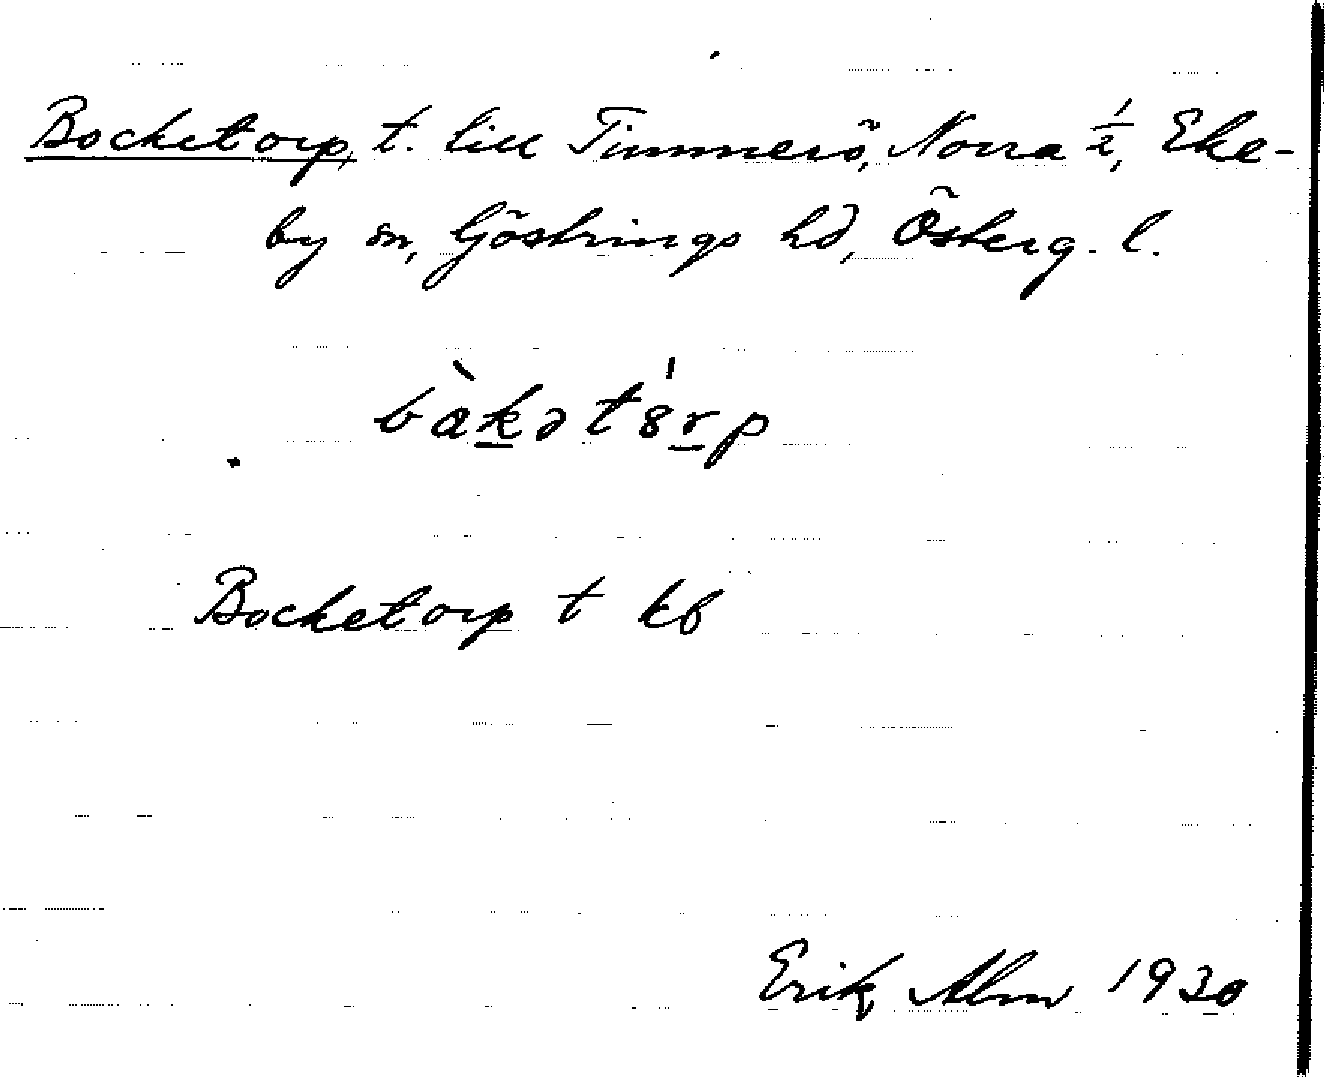 Bocketorp, t. till Timmerö, Norra ½, Eke-
by sn, Göstrings hd, Österg. l.
Bocketorp t kb
Erik Alm 1930